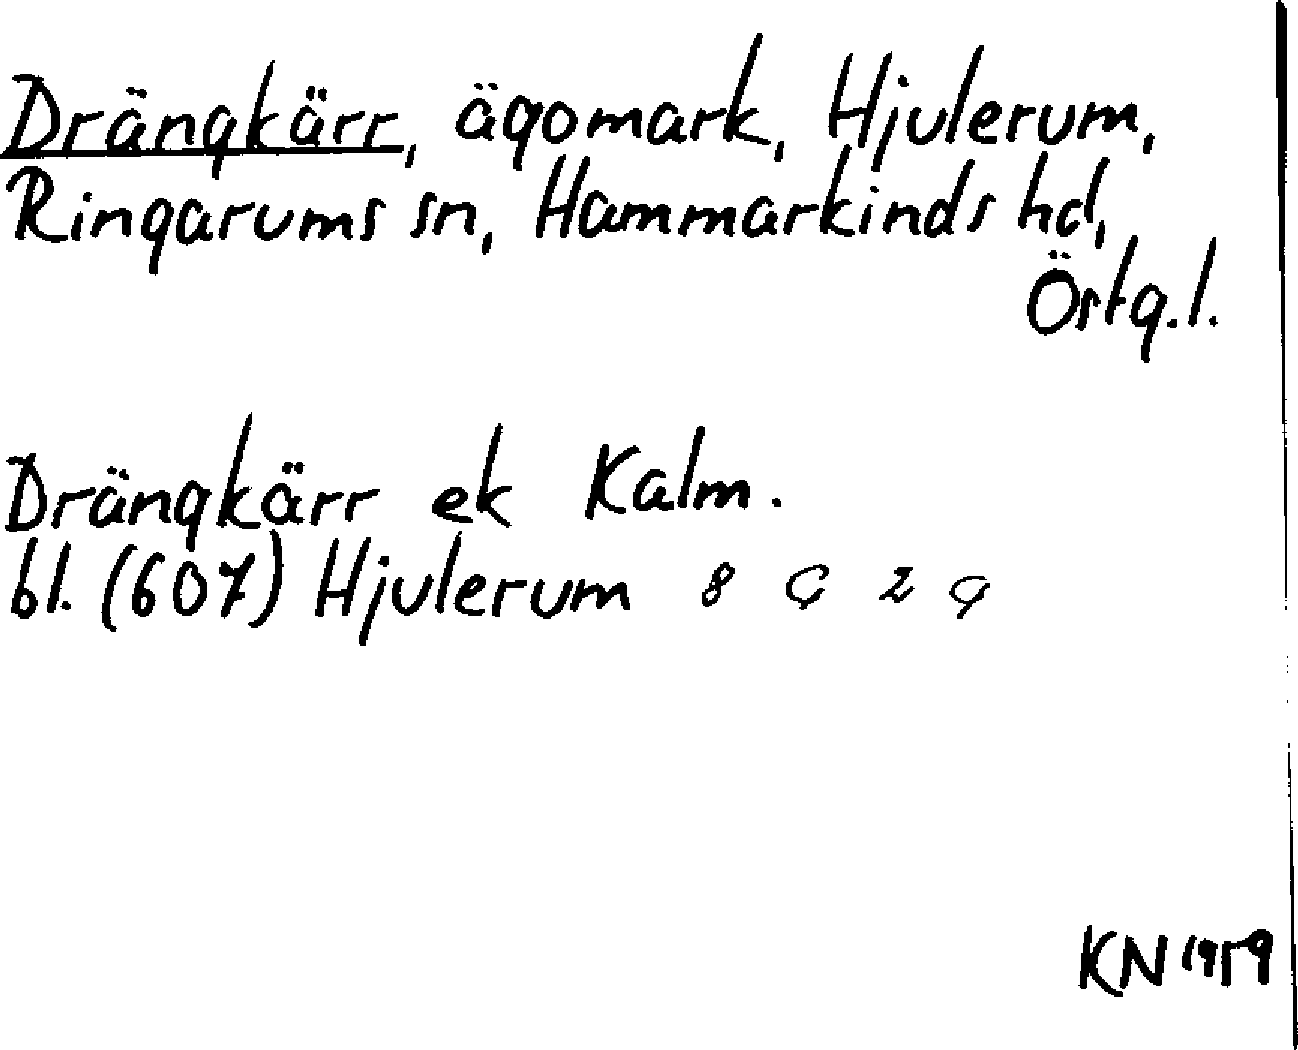 Drängkärr, ägomark, Hjulerum,
Ringarums sn, Hammarkinds hd,
Östg.l.
Drängkärr ek Kalm.
bl. (607) Hjulerum 8 G 2 g
KN 1959